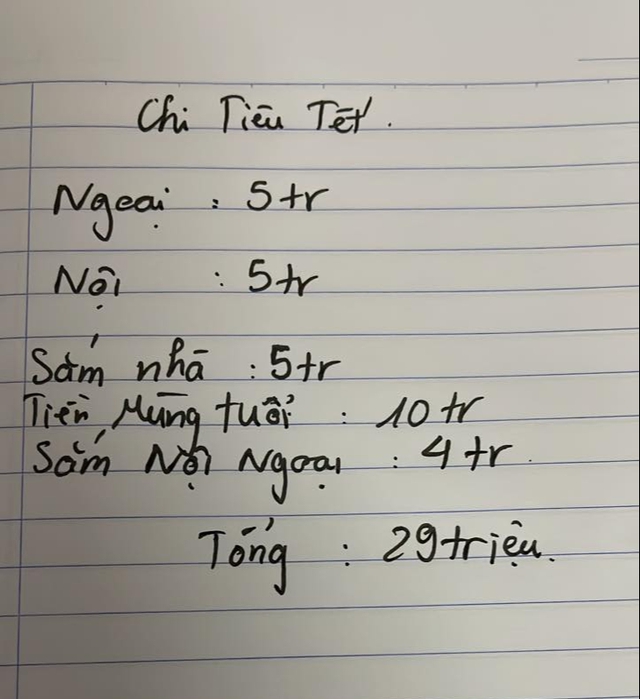 Chi Tiêu Tết.
Ngoại : 5tr
Nội : 5tr
Sắm nhà : 5tr
Tiền Mừng tuổi : 10 tr
Sắm Nội Ngoại : 4 tr.
Tổng : 29 triệu.